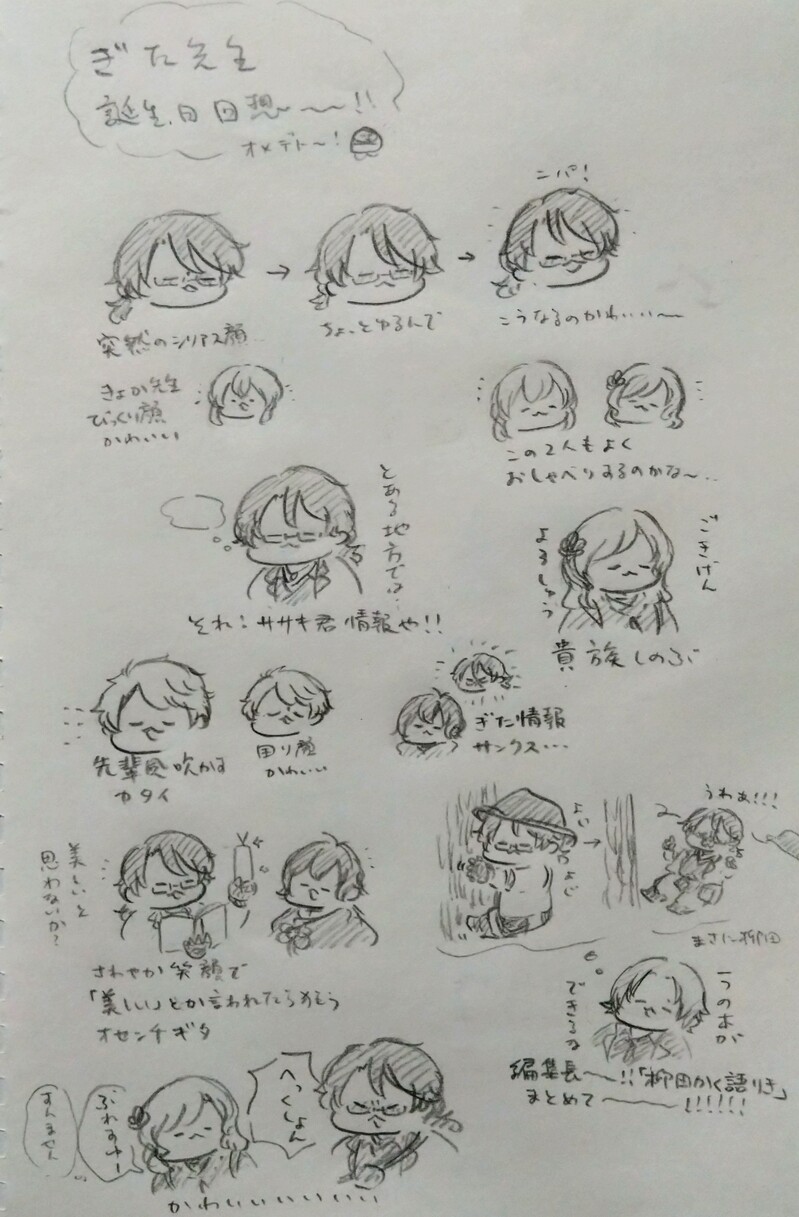 ぎた先生
誕生日回想〜〜!!
オメデト〜!
ニパ!
突然のシリアス顔
ちょっとゆるんで
こうなるのかわいい〜
きょか先生
びっくり顔
かわいい
この2人もよく
おしゃべりするのかな〜..
とある地方では…
それ:ササキ君情報や!!
ごきげん
よろしゅう
貴族しのぶ
先輩風吹かす
カタイ
困り顔
かわいい
ぎた情報
サンクス・・・
美しいと
思わないか?
さわやか笑顔で
「美しい」とか言われたら
オセンチギタ
うわぁ!!!
まさに柳田
一つの本が
できるな
編集長〜!!「柳田かく語りき」
まとめて〜!!!!!!
へっくしょん
すんません
かわいいいいいい